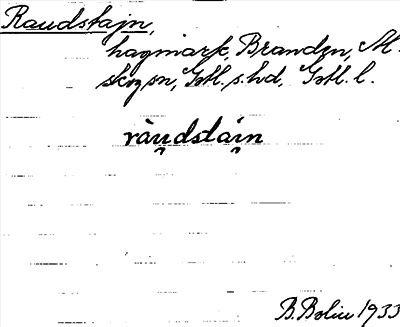 Raudstajn,
hagmark, Branden, M.
skog sn, Gotl. s. hd, Gotl. l.
ràu̯dstái̯n
B. Bolin 1933